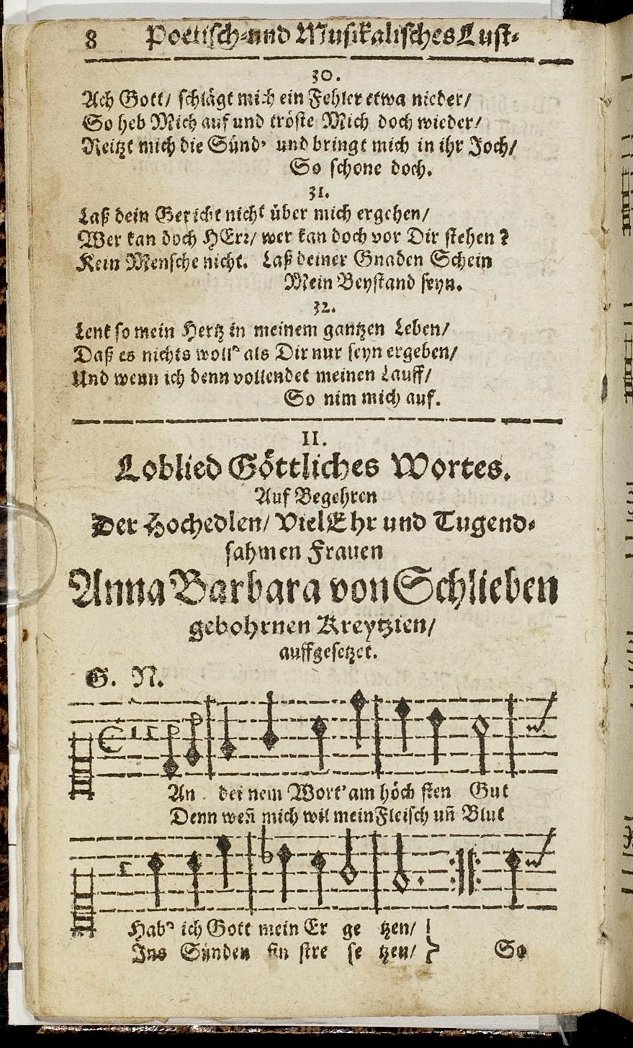 8 Poetisch-und Musikalisches Lust-
30.
Ach Gott/ schlägt mich ein Fehler etwa nieder/
So heb Mich auf und tröste Mich doch wieder/
Reitzt mich die Sünd' und bringt mich in ihr Joch/
So schone doch.
31.
Laß dein Gericht nicht über mich ergehen/
Wer kan doch HErr/ wer kan doch vor Dir stehen?
Kein Mensche nicht. Laß deiner Gnaden Schein
Mein Beystand seyn.
32.
Lenk so mein Hertz in meinem gantzen Leben/
Daß es nichts woll' als Dir nur seyn ergeben/
Und wenn ich denn vollendet meinen Lauff/
So nim mich auf.
II.
Loblied Göttliches Wortes.
Auf Begehren
Der Hochedlen/ VielEhr und Tugend-
sahmen Frauen
Anna Barbara von Schlieben
gebohrnen Kreytzien/
auffgesetzet.
G. N.
An deinem Wort' am höchsten Gut
Denn weñ mich wil mein Fleisch uñ Blut
Hab' ich Gott mein Er ge tzen/
Ins Sünden fin stre se tzen/ So